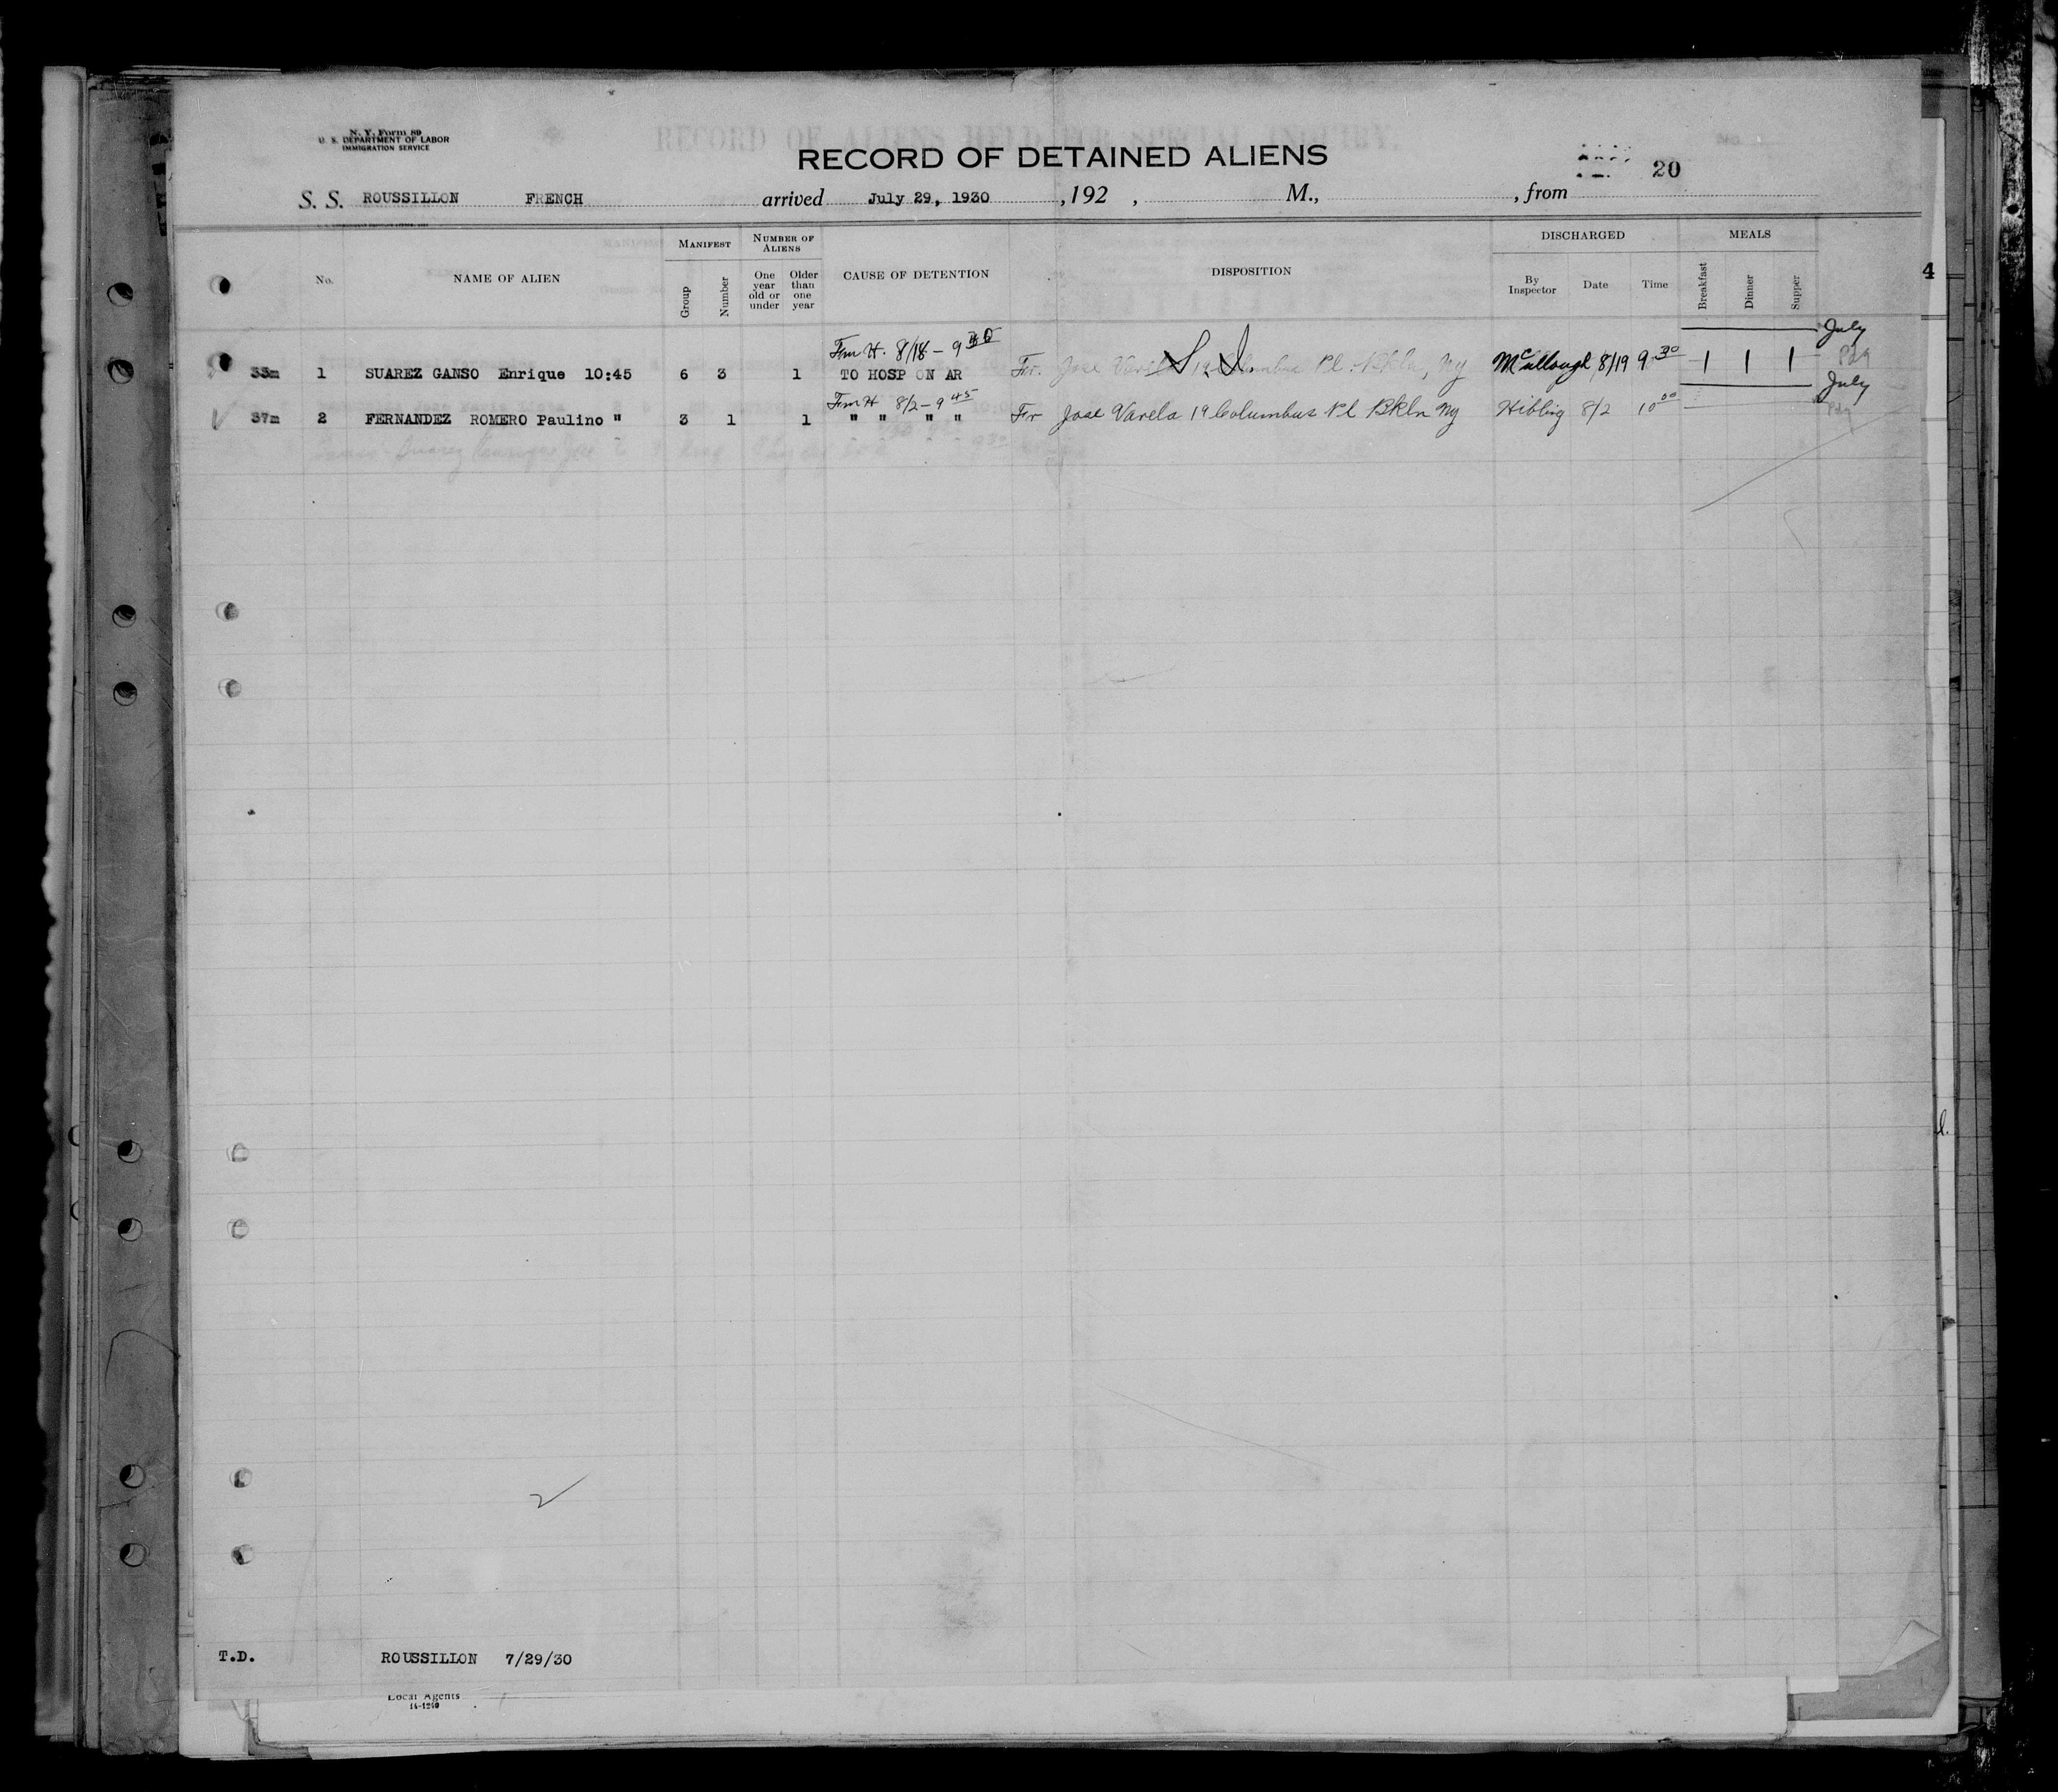 N. Y. Form 89
U. S. DEPARTMENT OF LABOR
IMMIGRATION SERVICE
RECORD OF ALIENS HELD FOR SPECIAL INQUIRY.
RECORD OF DETAINED ALIENS
20
S. S. ROUSSILLON FRENCH arrived July 29, 1930 , 192 , M., , from
No. NAME OF ALIEN MANIFEST Group Number NUMBER OF ALIENS One year old or under Older than one year CAUSE OF DETENTION DISPOSITION DISCHARGED By Inspector Date Time MEALS Breakfast Dinner Supper
4
Fm H. 8/18 - 9 30 July
33m 1 SUAREZ GANSO Enrique 10:45 6 3 1 TO HOSP ON AR Fr. Jose Varela 19 Columbus Pl. Bkln, Ny S. I. McCullough 8/19 9 30 1 1 1 Pdg
Fm H 8/2 - 9 45 July
37m 2 FERNANDEZ ROMERO Paulino " 3 1 1 " " " " Fr Jose Varela 19 Columbus Pl Bkln Ny Hibling 8/2 10 00 Pdg
T.D. ROUSSILLON 7/29/30
Local Agents
14-1240